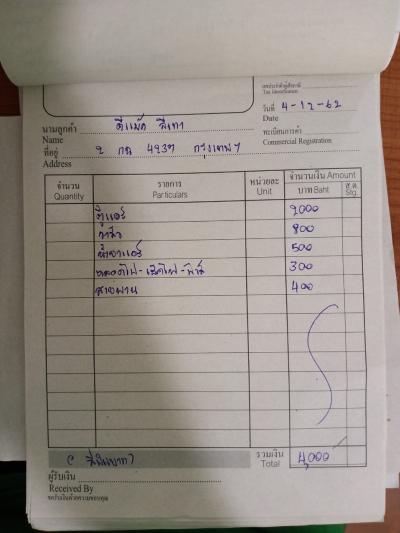 เลขประจำตัวผู้เสียภาษี
Tax Identification
วันที่ 4-12-62
Date
นามลูกค้า ดีแม็ก สีเทา
Name
ทะเบียนการค้า
Commercial Registration
ที่อยู่ กรุงเทพฯ
Address
จำนวน รายการ หน่วยละ จำนวนเงิน Amount
Quantity Particulars Unit บาท Baht ส.ต. Stg.
ตู้แอร์ 2000
วาล์ว 800
น้ำยาแอร์ 500
300
สายพาน 400
(สี่พันบาท) รวมเงิน 4,000
Total
ผู้รับเงิน
Received By
ขอรับเงินด้วยความขอบคุณ